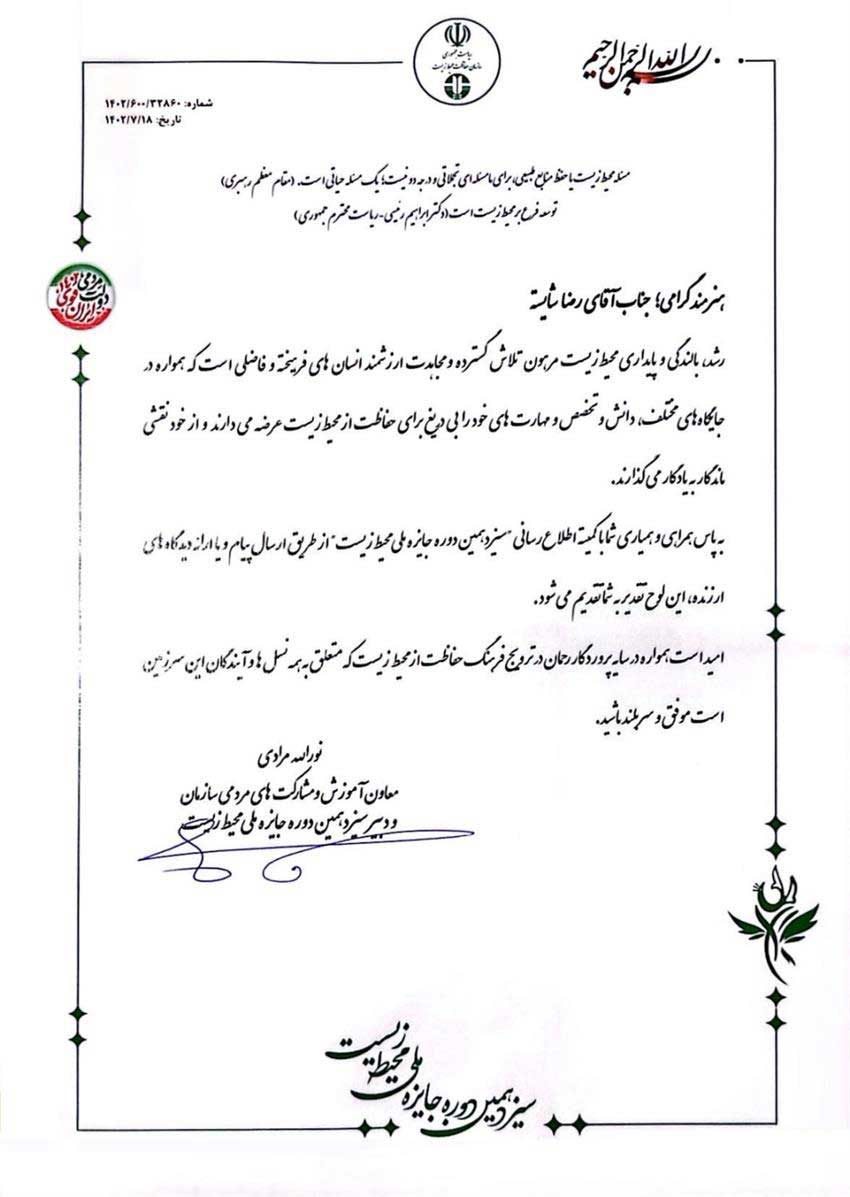 بسم الله الرحمن الرحیم
ریاست جمهوری
سازمان حفاظت محیط زیست
شماره: ۱۴۰۲/۶۰۰/۳۲۸۶۰
تاریخ: ۱۴۰۲/۷/۱۸
مسئله محیط زیست یا حفظ منابع طبیعی، برای ما مسئله ای تجملاتی و درجه دو نیست؛ یک مسئله حیاتی است. (مقام معظم رهبری)
توسعه فرع بر محیط زیست است (دکتر ابراهیم رئیسی-ریاست محترم جمهوری)
دولت مردمی
ایران قوی
هنرمند گرامی؛ جناب آقای رضا شایسته
رشد، بالندگی و پایداری محیط زیست مرهون تلاش گسترده و مجاهدت ارزشمند انسان های فرهیخته و فاضلی است که همواره در
جایگاه های مختلف، دانش و تخصص و مهارت های خود را بی دریغ برای حفاظت از محیط زیست عرضه می دارند و از خود نقشی
ماندگار به یادگار می گذارند.
به پاس همراهی و همیاری شما با کمیته اطلاع رسانی "سیزدهمین دوره جایزه ملی محیط زیست" از طریق ارسال پیام و یا ارائه دیدگاه های
ارزنده، این لوح تقدیر به شما تقدیم می شود.
امید است همواره در سایه پروردگار رحمان در ترویج فرهنگ حفاظت از محیط زیست که متعلق به همه نسل ها و آیندگان این سرزمین
است موفق و سربلند باشید.
نورالله مرادی
معاون آموزش و مشارکت های مردمی سازمان
و دبیر سیزدهمین دوره جایزه ملی محیط زیست
سیزدهمین دوره جایزه ملی محیط زیست